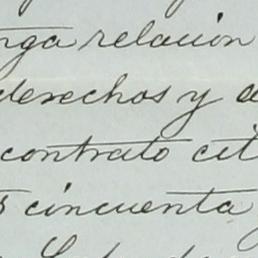 nga relacion
derechos y a
contrato cit
s cincuenta y